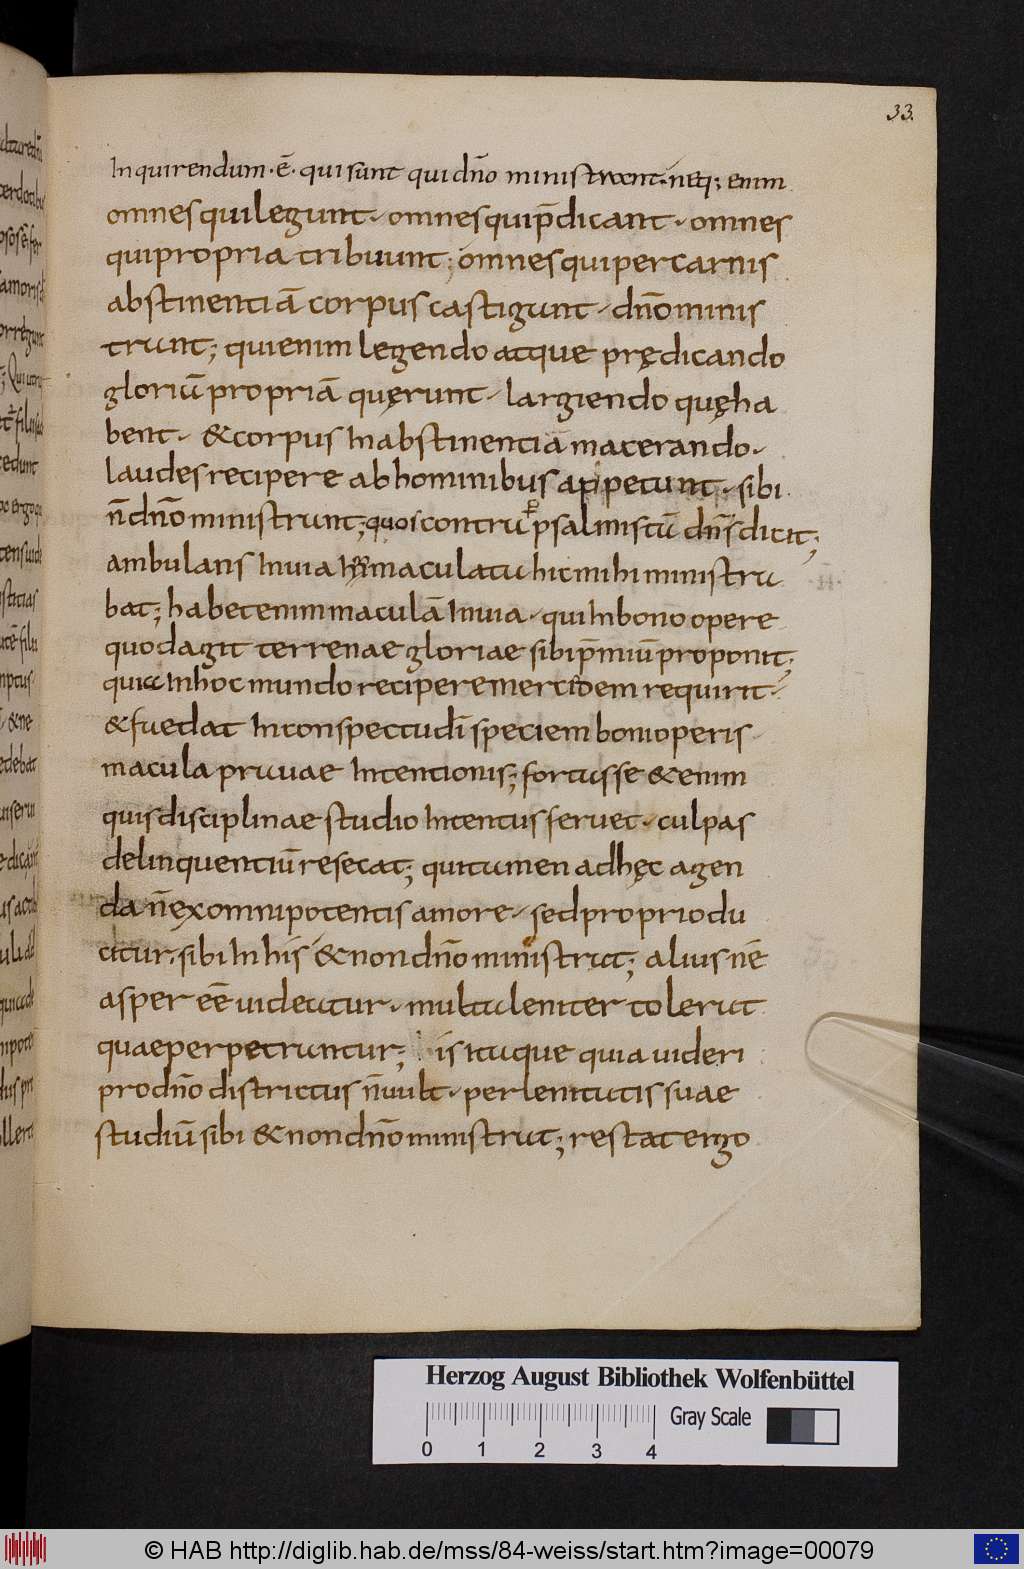 33.
Inquirendum · ē · qui sunt qui dn̄o ministrant · neq; enim
omnes qui legunt · omnes qui p̄dicant · omnes
qui propria tribuunt; omnes qui per carnis
abstinentiā corpus castigant · dn̄o minis
trant; qui enim legendo atque prędicando
gloriā propriā quęrunt · largiendo quę ha
bent · & corpus In abstinentia macerando ·
laudes recipere ab hominibus appetunt · sibi
n̄ dn̄o ministrant; quos contra psalmistā dn̄s dicit;
ambulans In uia Inmaculata hic mihi ministra
bat; habet enim maculā In uia · qui In bono opere
quod agit terrenae gloriae sibi p̄miū proponit;
quia In hoc mundo recipere mercedem requirit ·
& foedat In conspectu dī speciem boni operis
macula prauae Intentionis; fortasse & enim
quis disciplinae studio Intentus feruet · culpas
delinquentiū resecat; qui tamen ad hęc agen
da n̄ ex omnipotentis amore · sed proprio du
citur · sibi In his & non dn̄o ministrat; alius nē
asper eē uideatur · multa leniter tolerat
quae perpetrantur; is itaque quia uideri
pro dn̄o districtus n̄ uult · per lenitatis suae
studiū sibi & non dn̄o ministrat; restat ergo
Herzog August Bibliothek Wolfenbüttel
Gray Scale
0 1 2 3 4
© HAB http://diglib.hab.de/mss/84-weiss/start.htm?image=00079